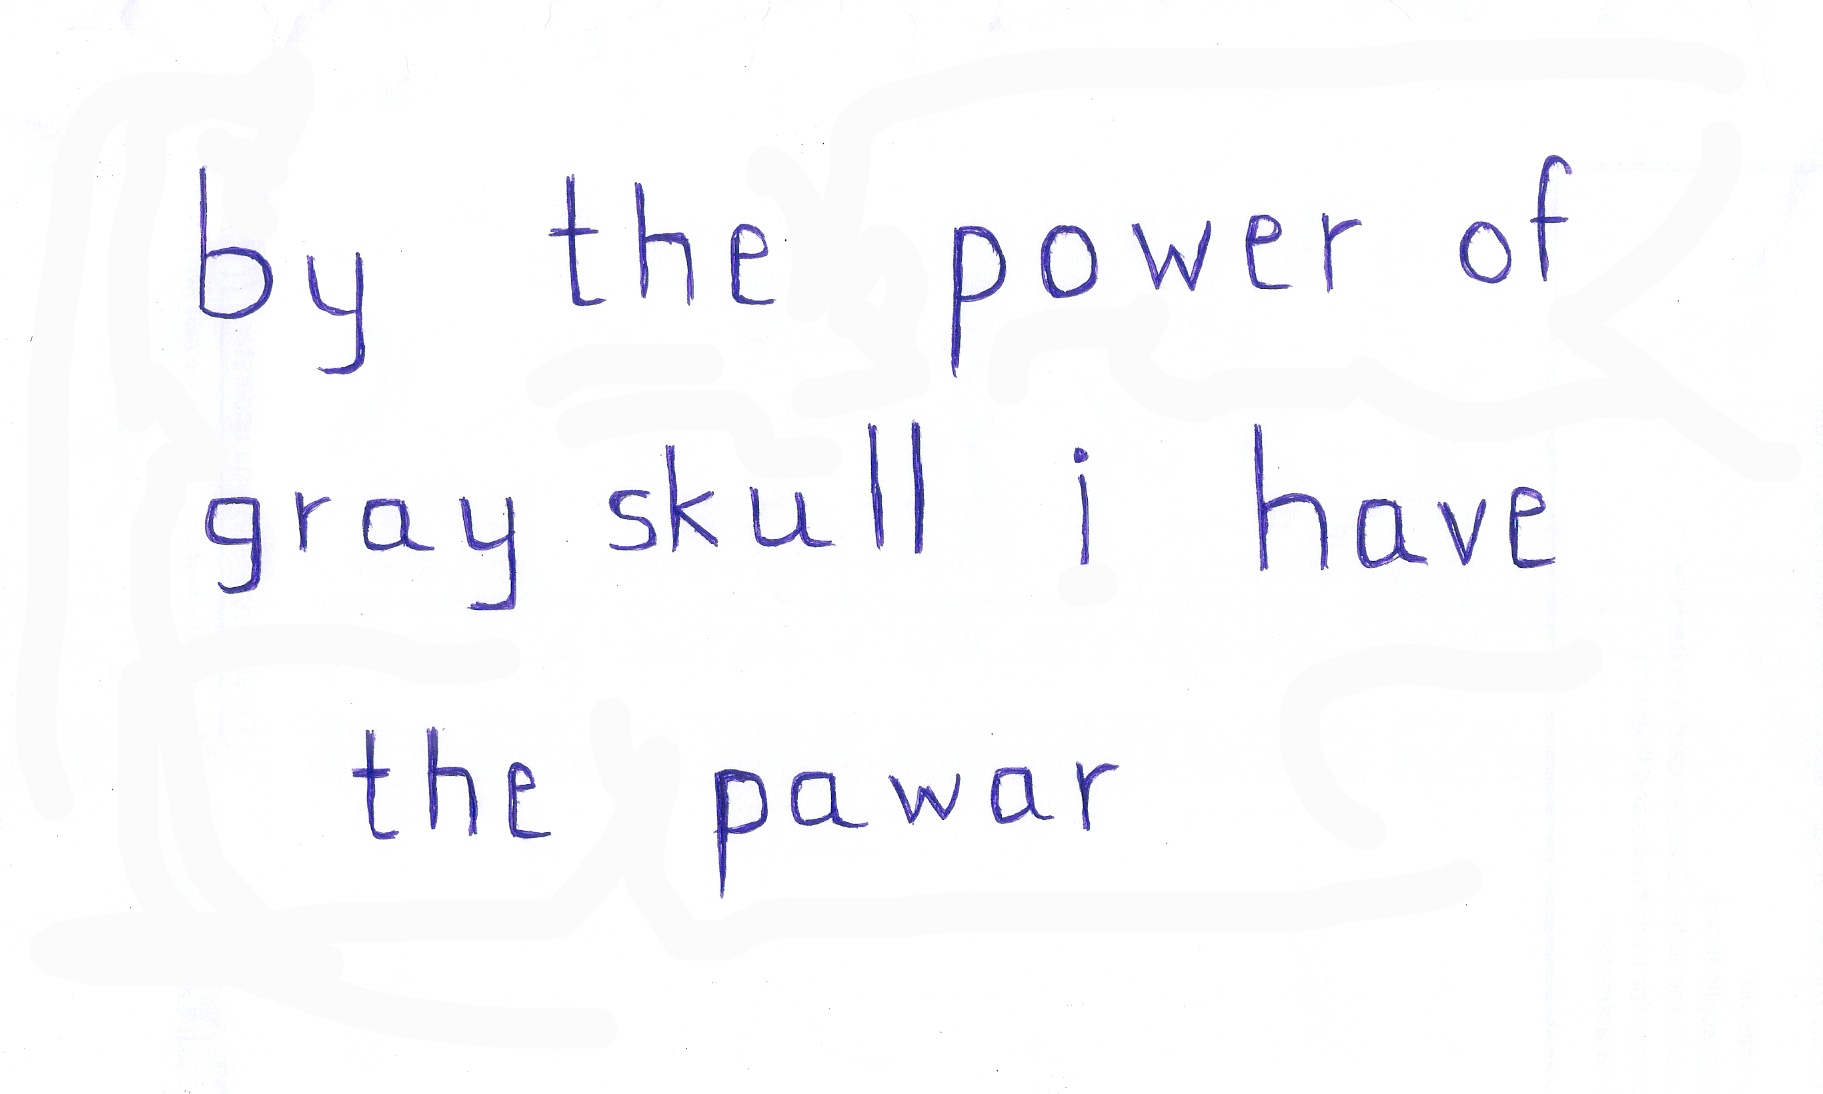 by the power of
gray skull i have
the pawar